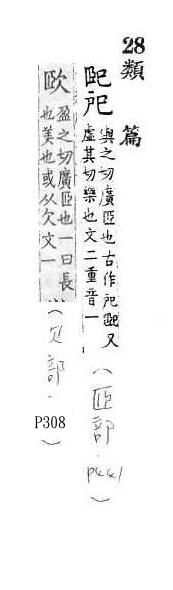 28類篇
巸戹
與之切廣𦣞也古作戺巸又
虛其切樂也文二重音一
(𦣞部. p441)
盈之切廣𦣞也一曰長
也美也或从欠文一
(欠部. P308)